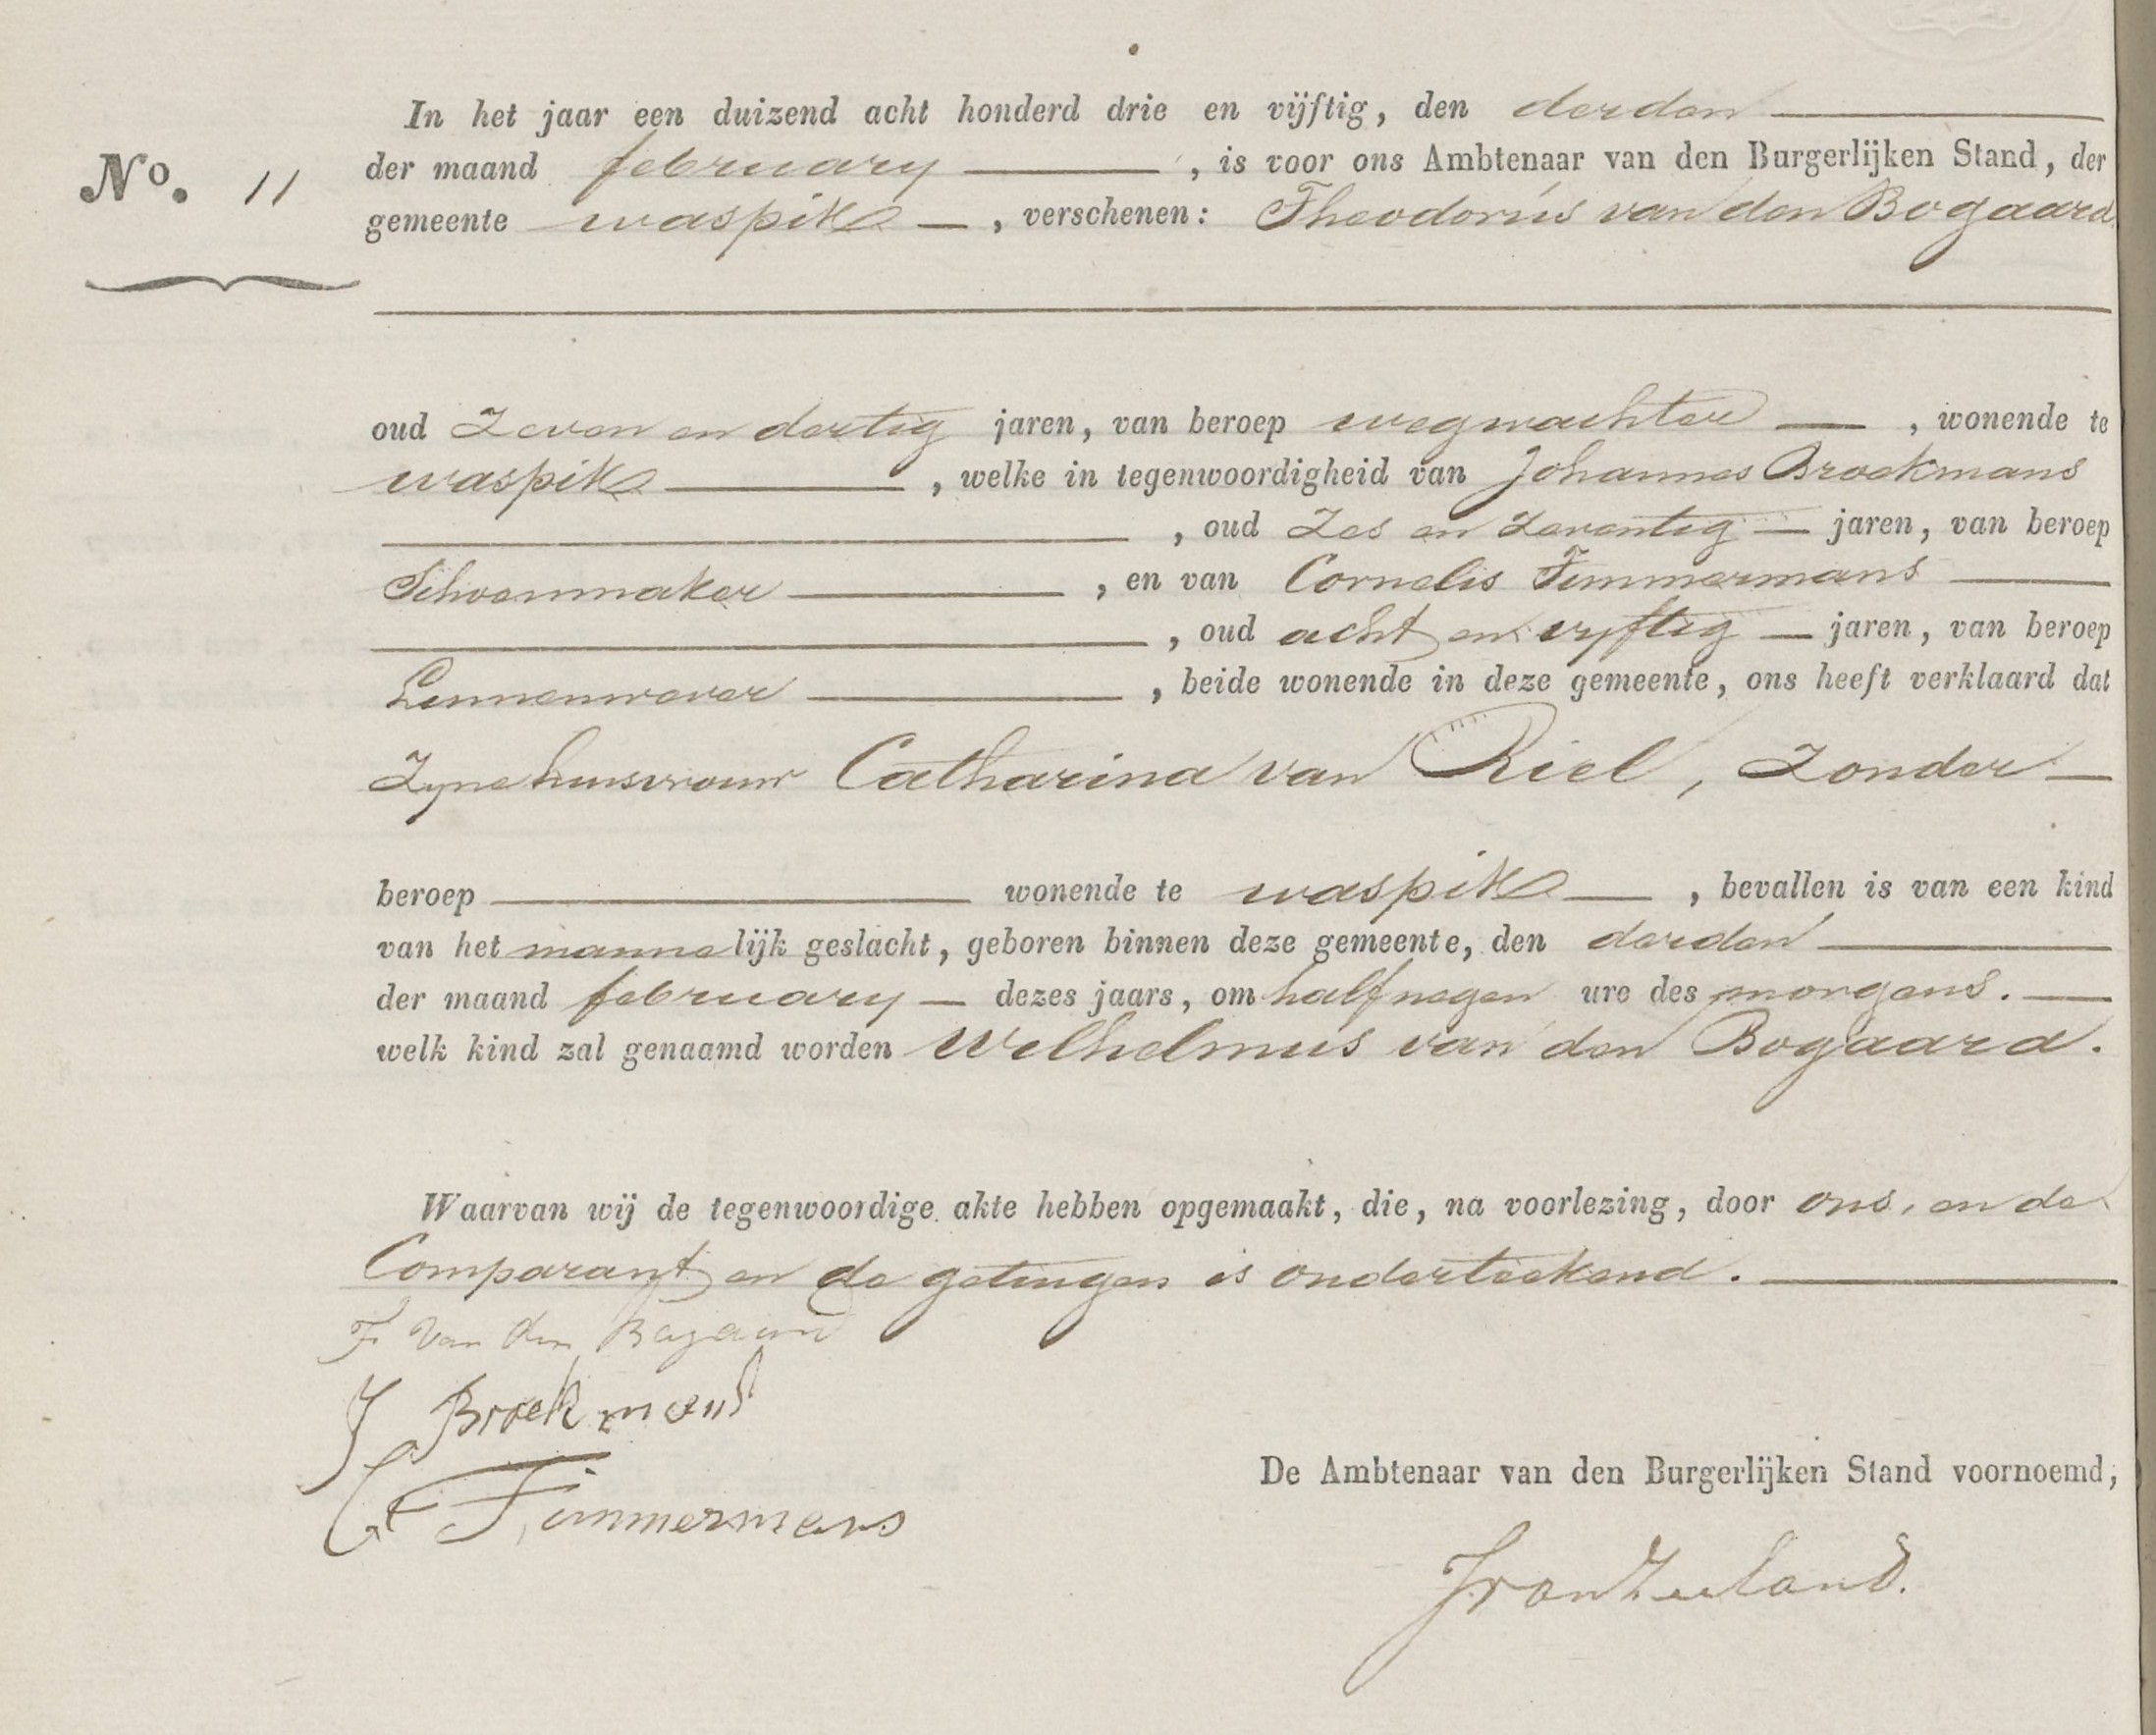 In het jaar een duizend acht honderd drie en vijftig, den derden
No. 11
der maand february, is voor ons Ambtenaar van den Burgerlijken Stand, der
gemeente waspik, verschenen: Theodorus van den Bogaard
oud Zeven en dertig jaren, van beroep wegwachter, wonende te
waspik, welke in tegenwoordigheid van Johannes Broekmans
, oud Zes en Zeventig jaren, van beroep
Schoenmaker, en van Cornelis Timmermans
, oud acht en vyftig jaren, van beroep
Linnenwever, beide wonende in deze gemeente, ons heeft verklaard dat
Zyne huisvrouw Catharina van Riel, Zonder
beroep wonende te waspik, bevallen is van een kind
van het mannelijk geslacht, geboren binnen deze gemeente, den derden
der maand february dezes jaars, om half negen ure des morgens.
welk kind zal genaamd worden Wilhelmus van den Bogaard.
Waarvan wij de tegenwoordige akte hebben opgemaakt, die, na voorlezing, door ons, en de
Comparant en de getuigen is onderteekend.
T Van den Bogaard
J Broekmans
C Timmermans
De Ambtenaar van den Burgerlijken Stand voornoemd,